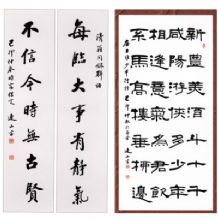 新豐美酒斗十千
咸陽游俠多少年
相逢意氣為君飲
馬高樓垂柳邊
清翁同龢聯語
每臨大事有靜氣
不信今時無古賢